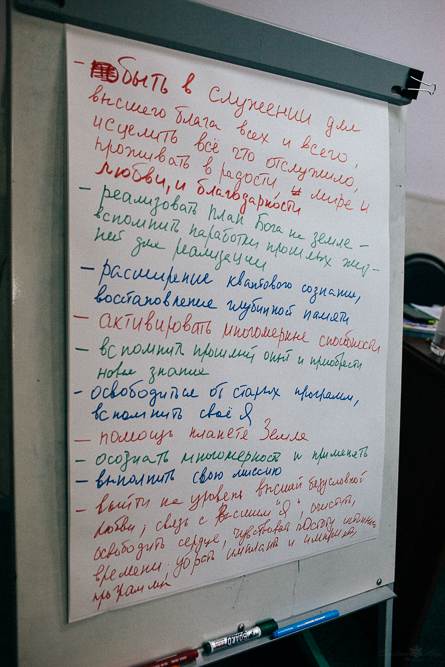 - Быть в служении для
высшего блага всех и всего,
исцелить всё что отслужило,
проживать в радости, мире и
любви, и благодарности
- реализовать план Бога на земле -
вспомнить наработки прошлых жиз-
ней для реализации
- расширение квантового сознания,
востановление глубинной памяти
- активировать многомерные способности
- вспомнить прошлый опыт и приобрести
новое знание
- освободиться от старых программ,
вспомнить своё Я
- помощь планете Земля
- осознать многомерность и применять
- выполнить свою миссию
- выйти на уровень высшей безусловной
любви, связь с Высшим "Я", очистить,
освободить сердце, чувствовать
времени, убрать импланты и
программы